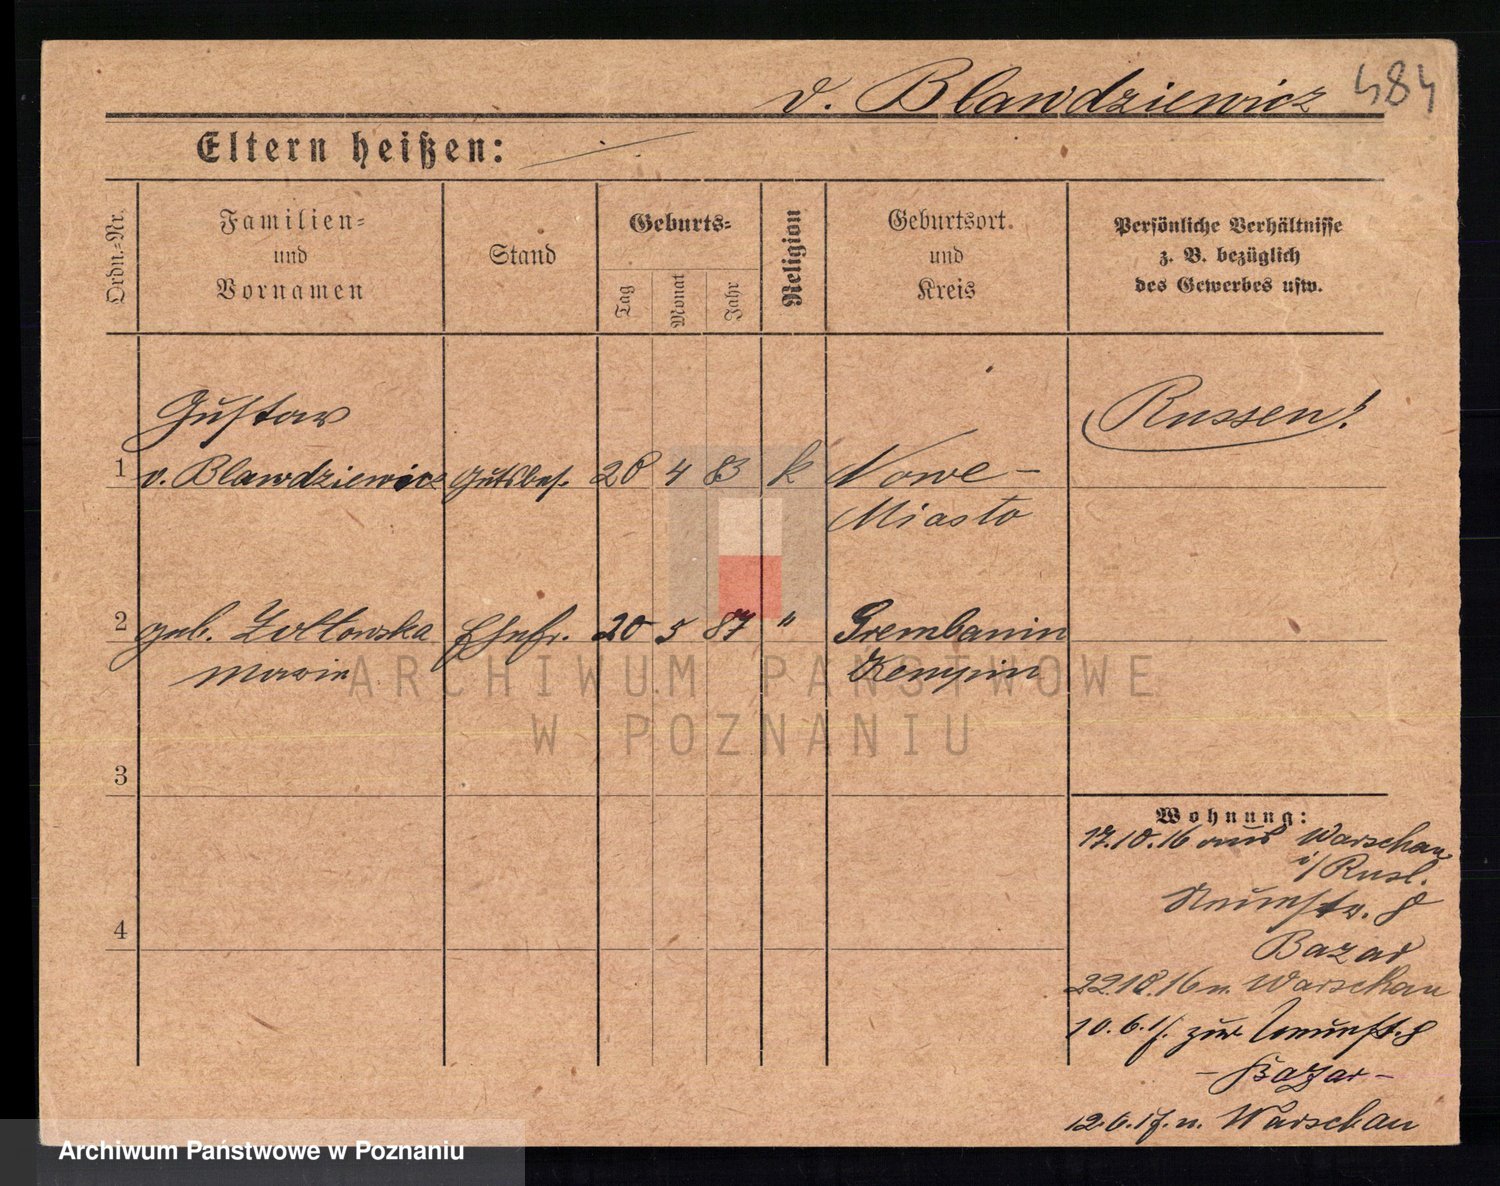 v. Blawdziewicz 484
Eltern heißen:
Ordn.-Nr.
Familien-
und
Vornamen
Stand
Geburts-
Tag
Monat
Jahr
Religion
Geburtsort
und
Kreis
Persönliche Verhältnisse
z. B. bezüglich
des Gewerbes usw.
Gustav
Russen!
1 v. Blawdziewicz Gutsbes. 28 4 83 k Nowe-
Miasto
2 geb. Zoltowska Ehefr. 20 5 87 " Grembanin
Maria Kempin
3
4
Wohnung:
17.10.16 aus Warschau
i/Rusl.
Neuestr. 8
Bazar
22.10.16 n. Warschau
10.6.17. zur Neuestr. 8
- Bazar -
12.6.17. n. Warschau
ARCHIWUM PAŃSTWOWE
W POZNANIU
Archiwum Państwowe w Poznaniu